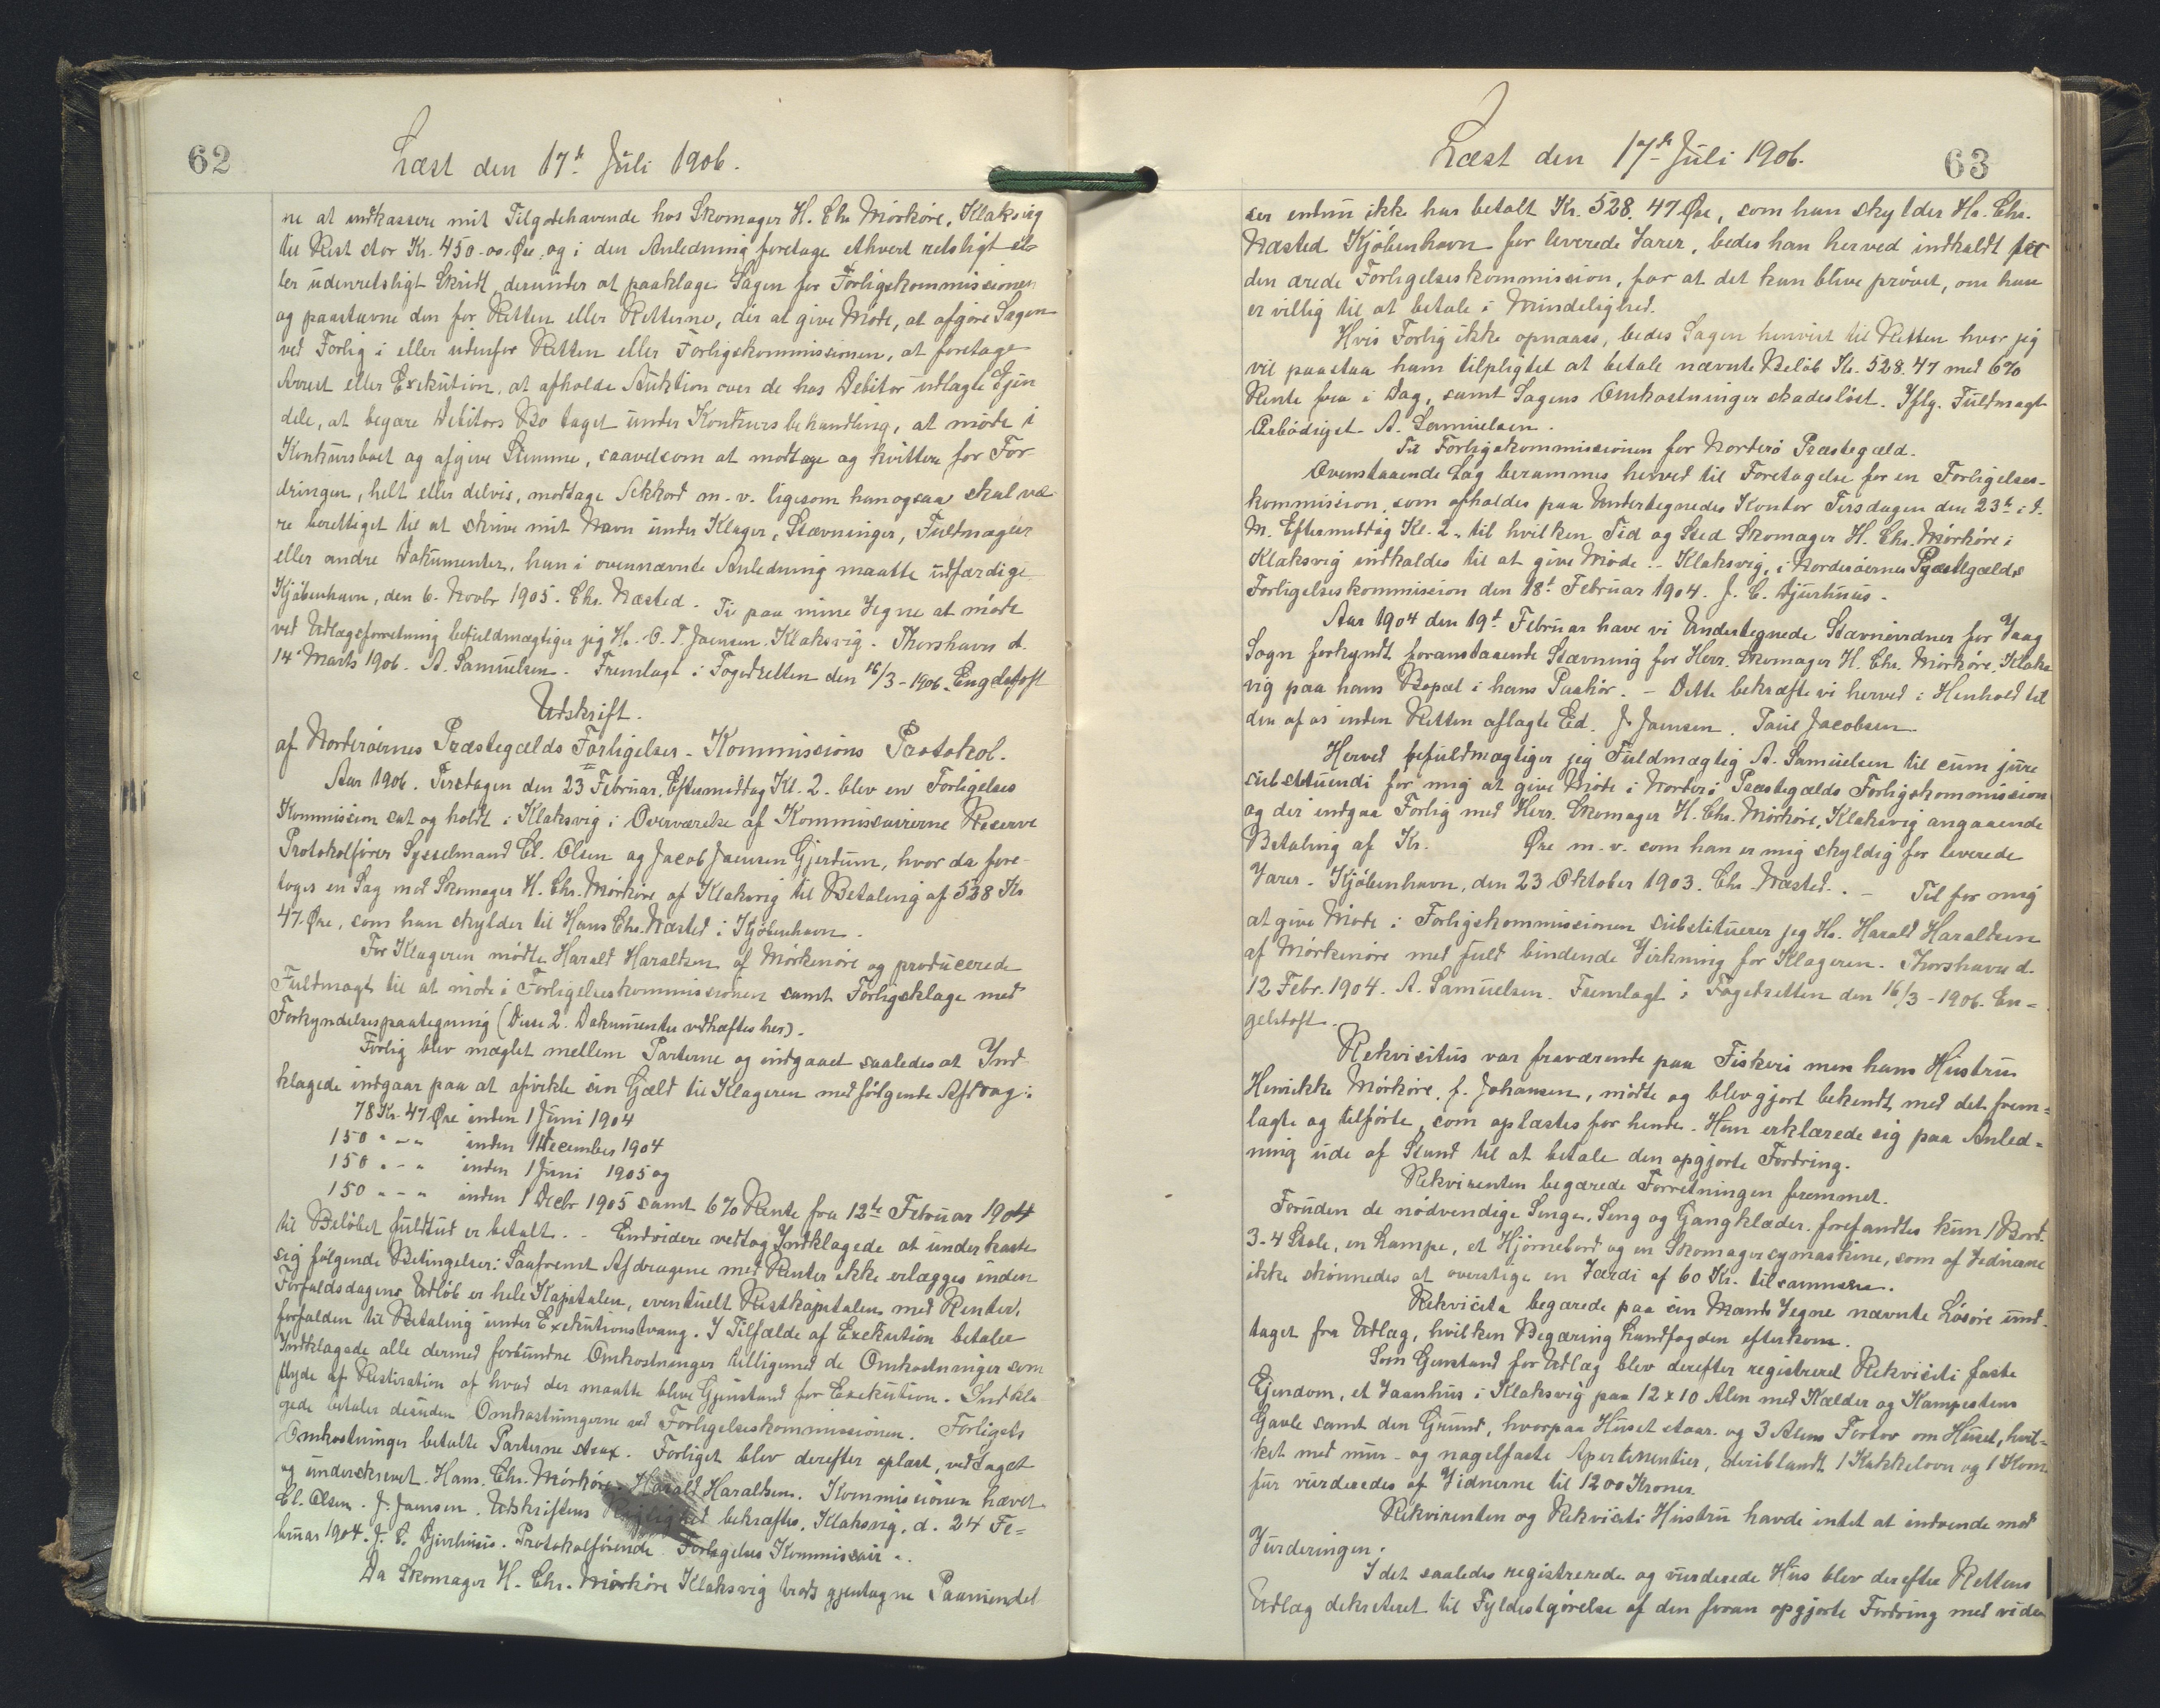 62
Læst den 17de Juli 1906.
ne at indkassere mit Tilgodehavende hos Skomager H. Chr. Mörköre, Klaksvig
til Rest stor Kr. 450-00 Øre, og i den Anledning foretage ethvert retsligt el-
ler udenretsligt Skridt, derunder at paaklage Sagen for Forligskommissionen
og paastævne den for Retten eller Retterne, der at give Möde, at afgöre Sagen
ved Forlig i eller udenfor Retten eller Forligskommissionen, at foretage
Arrest eller Exekution, at afholde Auktion over de hos Debitor udlagte Ejen
dele, at begære Debitors Bo taget under Konkursbehandling, at möde i
Konkursboet og afgive Stemme, saavelsom at modtage og kvittere for For
dringen, helt eller delvis, modtage Akkord m. v. ligesom han ogsaa skal væ
re berettiget til at skrive mit Navn under Klager, Stævninger, Fuldmagter
eller andre Dokumenter, han i ovennævnte Anledning maatte udfærdige
Kjöbenhavn, den 6. Novbr 1905. Chr. Næsted. Til paa mine Vegne at möde
ved Udlægsforretning befuldmægtiger jeg Hr. O. T. Joensen Klaksvig. Thorshavn d.
14 Marts 1906. A. Samuelsen. Fremlagt i Fogedretten den 16/3-1906. Engelstoft
Udskrift.
af Norderöernes Præstegælds Forligelses-Kommissions Protokol.
Aar 1906. Tirsdagen den 23 Februar, Eftermiddag Kl. 2. blev en Forligelses
Kommission sat og holdt i Klaksvig i Overværelse af Kommissairerne Reserve
Protokolförer Sysselmand Cl. Olsen og Jacob Joensen Gjerdum, hvor da fore-
toges en Sag mod Skomager H. Chr. Mörköre af Klaksvig til Betaling af 528 Kr
47 Øre, som han skylder til Hans Chr. Næsted i Kjöbenhavn.
For Klageren mödte Harald Haraldsen af Mörkenöre og producerede
Fuldmagt til at möde i Forligelseskommissionen samt Forligsklage med
Forkyndelsespaategning (Disse 2. Dokumenter vedhæftes her).
Forlig blev mæglet mellem Parterne og indgaaet saaledes at Ind
klagede indgaar paa at afvikle sin Gjæld til Klageren med fölgende Afdrag:
78 Kr. 47 Øre inden 1 Juni 1904
150 " - " inden 1 December 1904
150 " - " inden 1 Juni 1905 og
150 " - " inden 1 Decbr 1905 samt 6% Rente fra 12te Februar 1904
til Belöbet fuldtud er betalt. - Endvidere vedtog Indklagede at underkaste
sig fölgende Betingelser: Saafremt Afdragene med Renter ikke erlægges inden
Forfaldsdagens Udlöb er hele Kapitalen, eventuelt Restkapitalen med Renter,
forfalden til Betaling under Exekutionstvang. I Tilfælde af Exekution betaler
Indklagede alle dermed forbundne Omkostninger tilligemed de Omkostninger som
flyde af Realisation af hvad der maatte blive Gjenstand for Exekution. Indkla
gede betaler desuden Omkostningerne ved Forligelseskommissionen. Forligets
Omkostninger betalte Parterne strax. Forliget blev derefter oplæst, vedtaget
og underskrevet. Hans. Chr. Mörköre. Harald Haraldsen. Kommissionen hævet.
Cl. Olsen. J. Joensen. Udskriftens Rigtighed bekræftes. Klaksvig, d. 24 Fe-
bruar 1904. J. C. Djurhuus. Protokolförende Forligelses Kommissair.
Da Skomager H. Chr. Mörköre Klaksvig trods gjentagne Paamindel
Læst den 17de Juli 1906.
63
ser endnu ikke har betalt Kr. 528. 47 Øre, som han skylder Hr. Chr.
Næsted Kjöbenhavn for leverede Varer, bedes han herved indkaldt for
den ærede Forligelseskommission, for at det kan blive prövet, om han
er villig til at betale i Mindelighed.
Hvis Forlig ikke opnaaes, bedes Sagen henvist til Retten hvor jeg
vil paastaa ham tilpligtet at betale nævnte Belöb Kr. 528.47 med 6%
Rente fra i Dag, samt Sagens Omkostninger skadeslöst. Iflg. Fuldmagt
Ærbödigst A. Samuelsen.
Til Forligskommissionen for Norderö Præstegæld.
Ovenstaaende Sag berammes herved til Foretagelse for en Forligelses-
kommission, som afholdes paa Undertegnedes Kontor Tirsdagen den 23de i d.
M. Eftermiddag Kl. 2. til hvilken Tid og Sted Skomager H. Chr. Mörköre i
Klaksvig indkaldes til at give Möde. - Klaksvig, i Norderöernes Præstegælds
Forligelseskommission den 18de Februar 1904. J. C. Djurhuus.
Aar 1904 den 19de Februar have vi Undertegnede Stævnevidner for Vaag
Sogn forkyndt foranstaaende Stævning for Herr. Skomager H. Chr. Mörköre, Klaks
vig paa hans Bopæl i hans Paahör. - Dette bekræfte vi herved i Henhold til
den af os inden Retten aflagte Ed. J. Joensen. Poul Jacobsen.
Herved befuldmægtiger jeg Fuldmægtig A. Samuelsen til cum jure
substituendi for mig at give Möde i Norderö Præstegælds Forligskommission
og der indgaa Forlig med Herr. Skomager H. Chr. Mörköre, Klaksvig angaaende
Betaling af Kr. Øre m. v. som han er mig skyldig for leverede
Varer. Kjöbenhavn, den 23 Oktober 1903. Chr. Næsted. - Til for mig
at give Möde i Forligskommissionen substituerer jeg Hr. Harald Haraldsen
af Mörkenöre med fuld bindende Virkning for Klageren. Thorshavn d.
12 Febr. 1904. A. Samuelsen. Fremlagt i Fogedretten den 16/3-1906. En=
gelstoft.
Rekvisitus var fraværende paa Fiskeri men hans Hustru
Henrikke Mörköre, f. Johansen, mödte og blev gjort bekendt med det frem=
lagte og tilförte, som oplæstes for hende. Hun erklærede sig paa Anled=
ning ude af Stand til at betale den opgjorte Fordring.
Rekvirenten begærede Forretningen fremmet.
Foruden de nödvendige Senge, Seng og Gangklæder forefandtes kun 1 Bord.
3-4 Stole, en Lampe, et Hjörnebord og en Skomagersymaskine, som af Vidnerne
ikke skönnedes at overstige en Værdi af 60 Kr. tilsammen.
Rekvisita begærede paa sin Mands Vegne nævnte Lösöre und-
taget fra Udlæg, hvilken Begæring Landfogden efterkom.
Som Genstand for Udlæg blev derefter registreret Rekvisiti faste
Ejendom, et Vaanhus i Klaksvig paa 12 x 10 Alen med Kælder og Kampestens
Gavle samt den Grund, hvorpaa Huset staar og 3 Alens Fortov om Huset, hvil-
ket med mur- og nagelfaste Apertinentier, deriblandt 1 Kakkelovn og 1 Kom
fur vurderedes af Vidnerne til 1200 Kroner.
Rekvirenten og Rekvisiti Hustru havde intet at indvende mod
Vurderingen.
I det saaledes registrerede og vurderede Hus blev derefter Rettens
Udlæg dekreteret til Fyldestgörelse af den foran opgjorte Fordring med vider